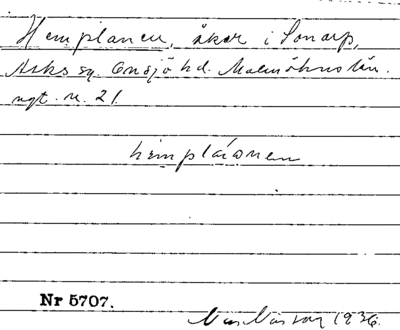 Hemplanen, åker i Sonarp,
Asks sn. Onsjö hd. Malmöhus län.
ngt. n. 21.
hemplåonen
Nr 5707.
1936.